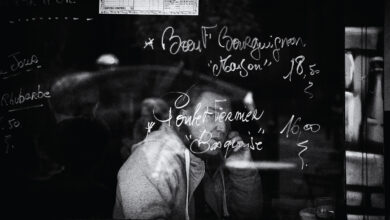 * Boeuf Bourguignon
"Maison" 18,50
* Poulet Fermier
"Basquaise" 16,00
Jour
Rhubarbe
50